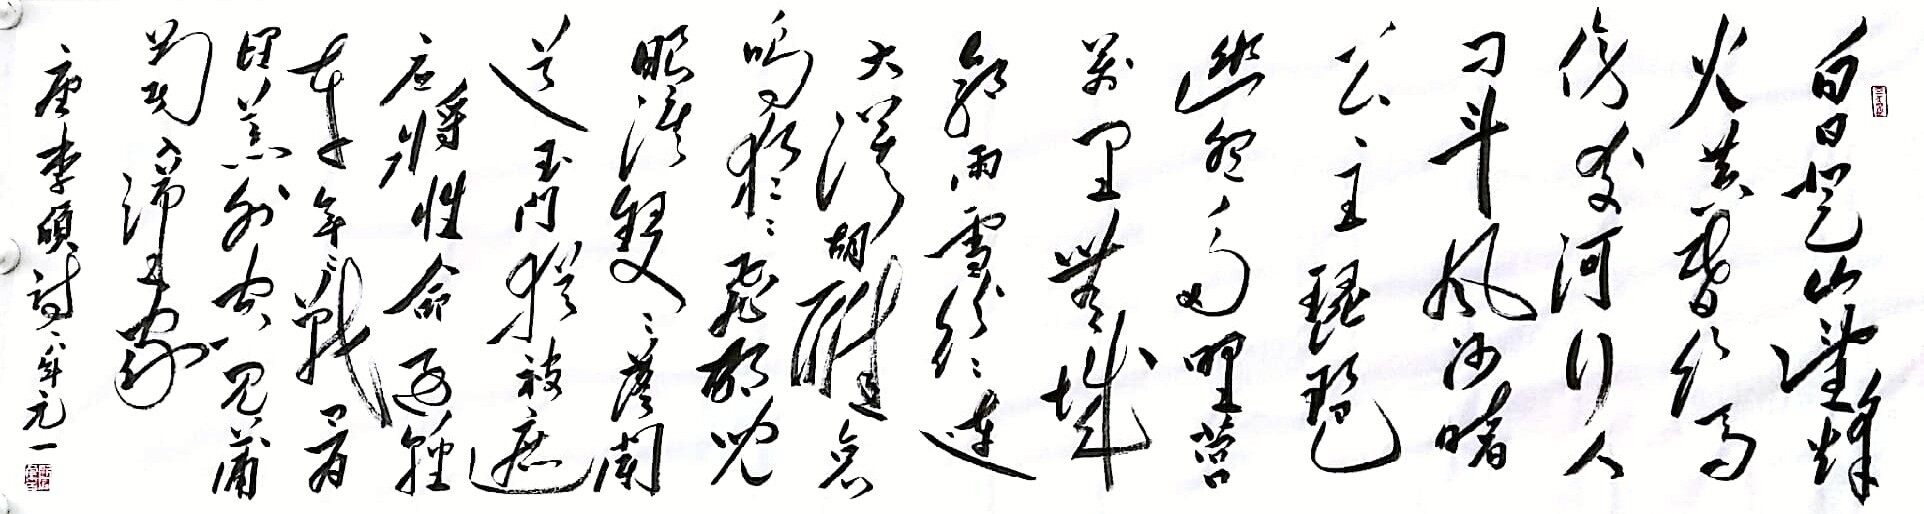 白日登山望烽
火黄昏饮马
傍交河行人
刁斗风沙暗
公主琵琶
幽怨多野營
萬里無城
郭雨雪纷纷连
大漠胡雁哀
鸣夜夜飛胡兒
眼淚雙雙落闻
道玉门犹被遮
应將性命逐轻
车年年戰骨
埋荒外空见蒲
入漢家
唐李頎詩 年元一